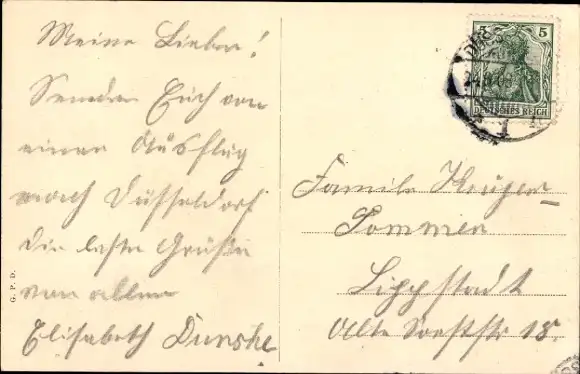 Meine Lieben!
Senden Euch von
einem Ausflug
nach Düsseldorf
die besten Grüße
von allen
Elisabeth Dunshe
G. P. D.
5
DEUTSCHES REICH
1
Familie Krüger-
Sommer
Lippstadt
Alte Soeststr 15.